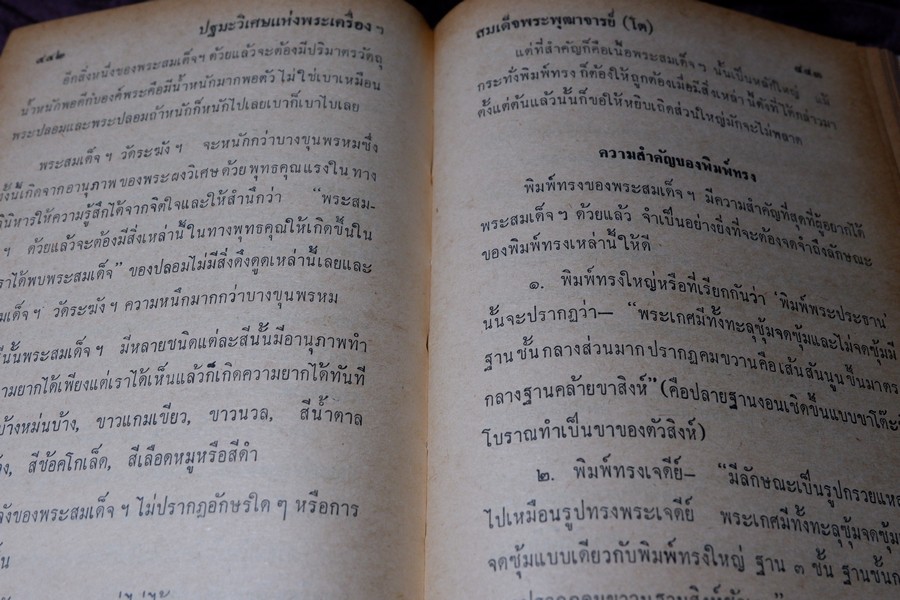 ๔๔๒ ปฐมะวิเศษแห่งพระเครื่อง ๆ
อีกสิ่งหนึ่งของพระสมเด็จฯ ด้วยแล้วจะต้องมีปริมาตรวัตถุ
น้ำหนักพอดีกับองค์พระคือมีน้ำหนักมากพอตัว ไม่ใช่เบาเหมือน
พระปลอมและพระปลอมถ้าหนักก็หนักไปเลยเบาก็เบาไปเลย
พระสมเด็จ ฯ วัดระฆัง ฯ จะหนักกว่าบางขุนพรหมซึ่ง
นี้เกิดจากอานุภาพของพระผงวิเศษ ด้วยพุทธคุณแรงใน ทาง
ให้ความรู้สึกได้จากจิตใจและให้สำนึกว่า "พระสม-
ฯ ด้วยแล้วจะต้องมีสิ่งเหล่านี้ในทางพุทธคุณให้เกิดขึ้นใน
ราได้พบพระสมเด็จ" ของปลอมไม่มีสิ่งดึงดูดเหล่านี้เลยและ
มเด็จ ฯ วัดระฆัง ฯ ความหนึกมากกว่าบางขุนพรหม
นั้นพระสมเด็จ ฯ มีหลายชนิดแต่ละสีนั้นมีอานุภาพทำ
ามยากได้เพียงแต่เราได้เห็นแล้วก็เกิดความยากได้ทันที
บ้างหม่นบ้าง, ขาวแกมเขียว, ขาวนวล, สีน้ำตาล
ง, สีช้อคโกเล็ต, สีเลือดหมูหรือสีดำ
ลังของพระสมเด็จ ฯ ไม่ปรากฏอักษรใด ๆ หรือการ
น
สมเด็จพระพุฒาจารย์ (โต) ๔๔๓
แต่ที่สำคัญก็คือเนื้อพระสมเด็จ ฯ นั้นเป็นหลักใหญ่ แม้
กระทั่งพิมพ์ทรง ก็ต้องให้ถูกต้องเมื่อมีสิ่งเหล่านี้ดังที่ได้กล่าวมา
ตั้งแต่ต้นแล้วนั้นก็ขอให้หยิบเถิดส่วนใหญ่มักจะไม่พลาด
ความสำคัญของพิมพ์ทรง
พิมพ์ทรงของพระสมเด็จ ฯ มีความสำคัญที่สุดที่ผู้อยากได้
พระสมเด็จ ฯ ด้วยแล้ว จำเป็นอย่างยิ่งที่จะต้องจดจำถึงลักษณะ
ของพิมพ์ทรงเหล่านี้ให้ดี
๑. พิมพ์ทรงใหญ่หรือที่เรียกกันว่า 'พิมพ์พระประธาน'
นั้นจะปรากฏว่า— "พระเกศมีทั้งทะลุซุ้มจดซุ้มและไม่จดซุ้มมี
ฐาน ชั้น กลางส่วนมาก ปรากฏคมขวานคือเส้นสันนูนขึ้นมาตร
กลางฐานคล้ายขาสิงห์" (คือปลายฐานงอนเชิดขึ้นแบบขาโต๊ะ
โบราณทำเป็นขาของตัวสิงห์)
๒. พิมพ์ทรงเจดีย์— "มีลักษณะเป็นรูปกรวยแหล
ไปเหมือนรูปทรงพระเจดีย์ พระเกศมีทั้งทะลุซุ้มจดซุ้ม
จดซุ้มแบบเดียวกับพิมพ์ทรงใหญ่ ฐาน ๓ ชั้น ฐานชั้นก